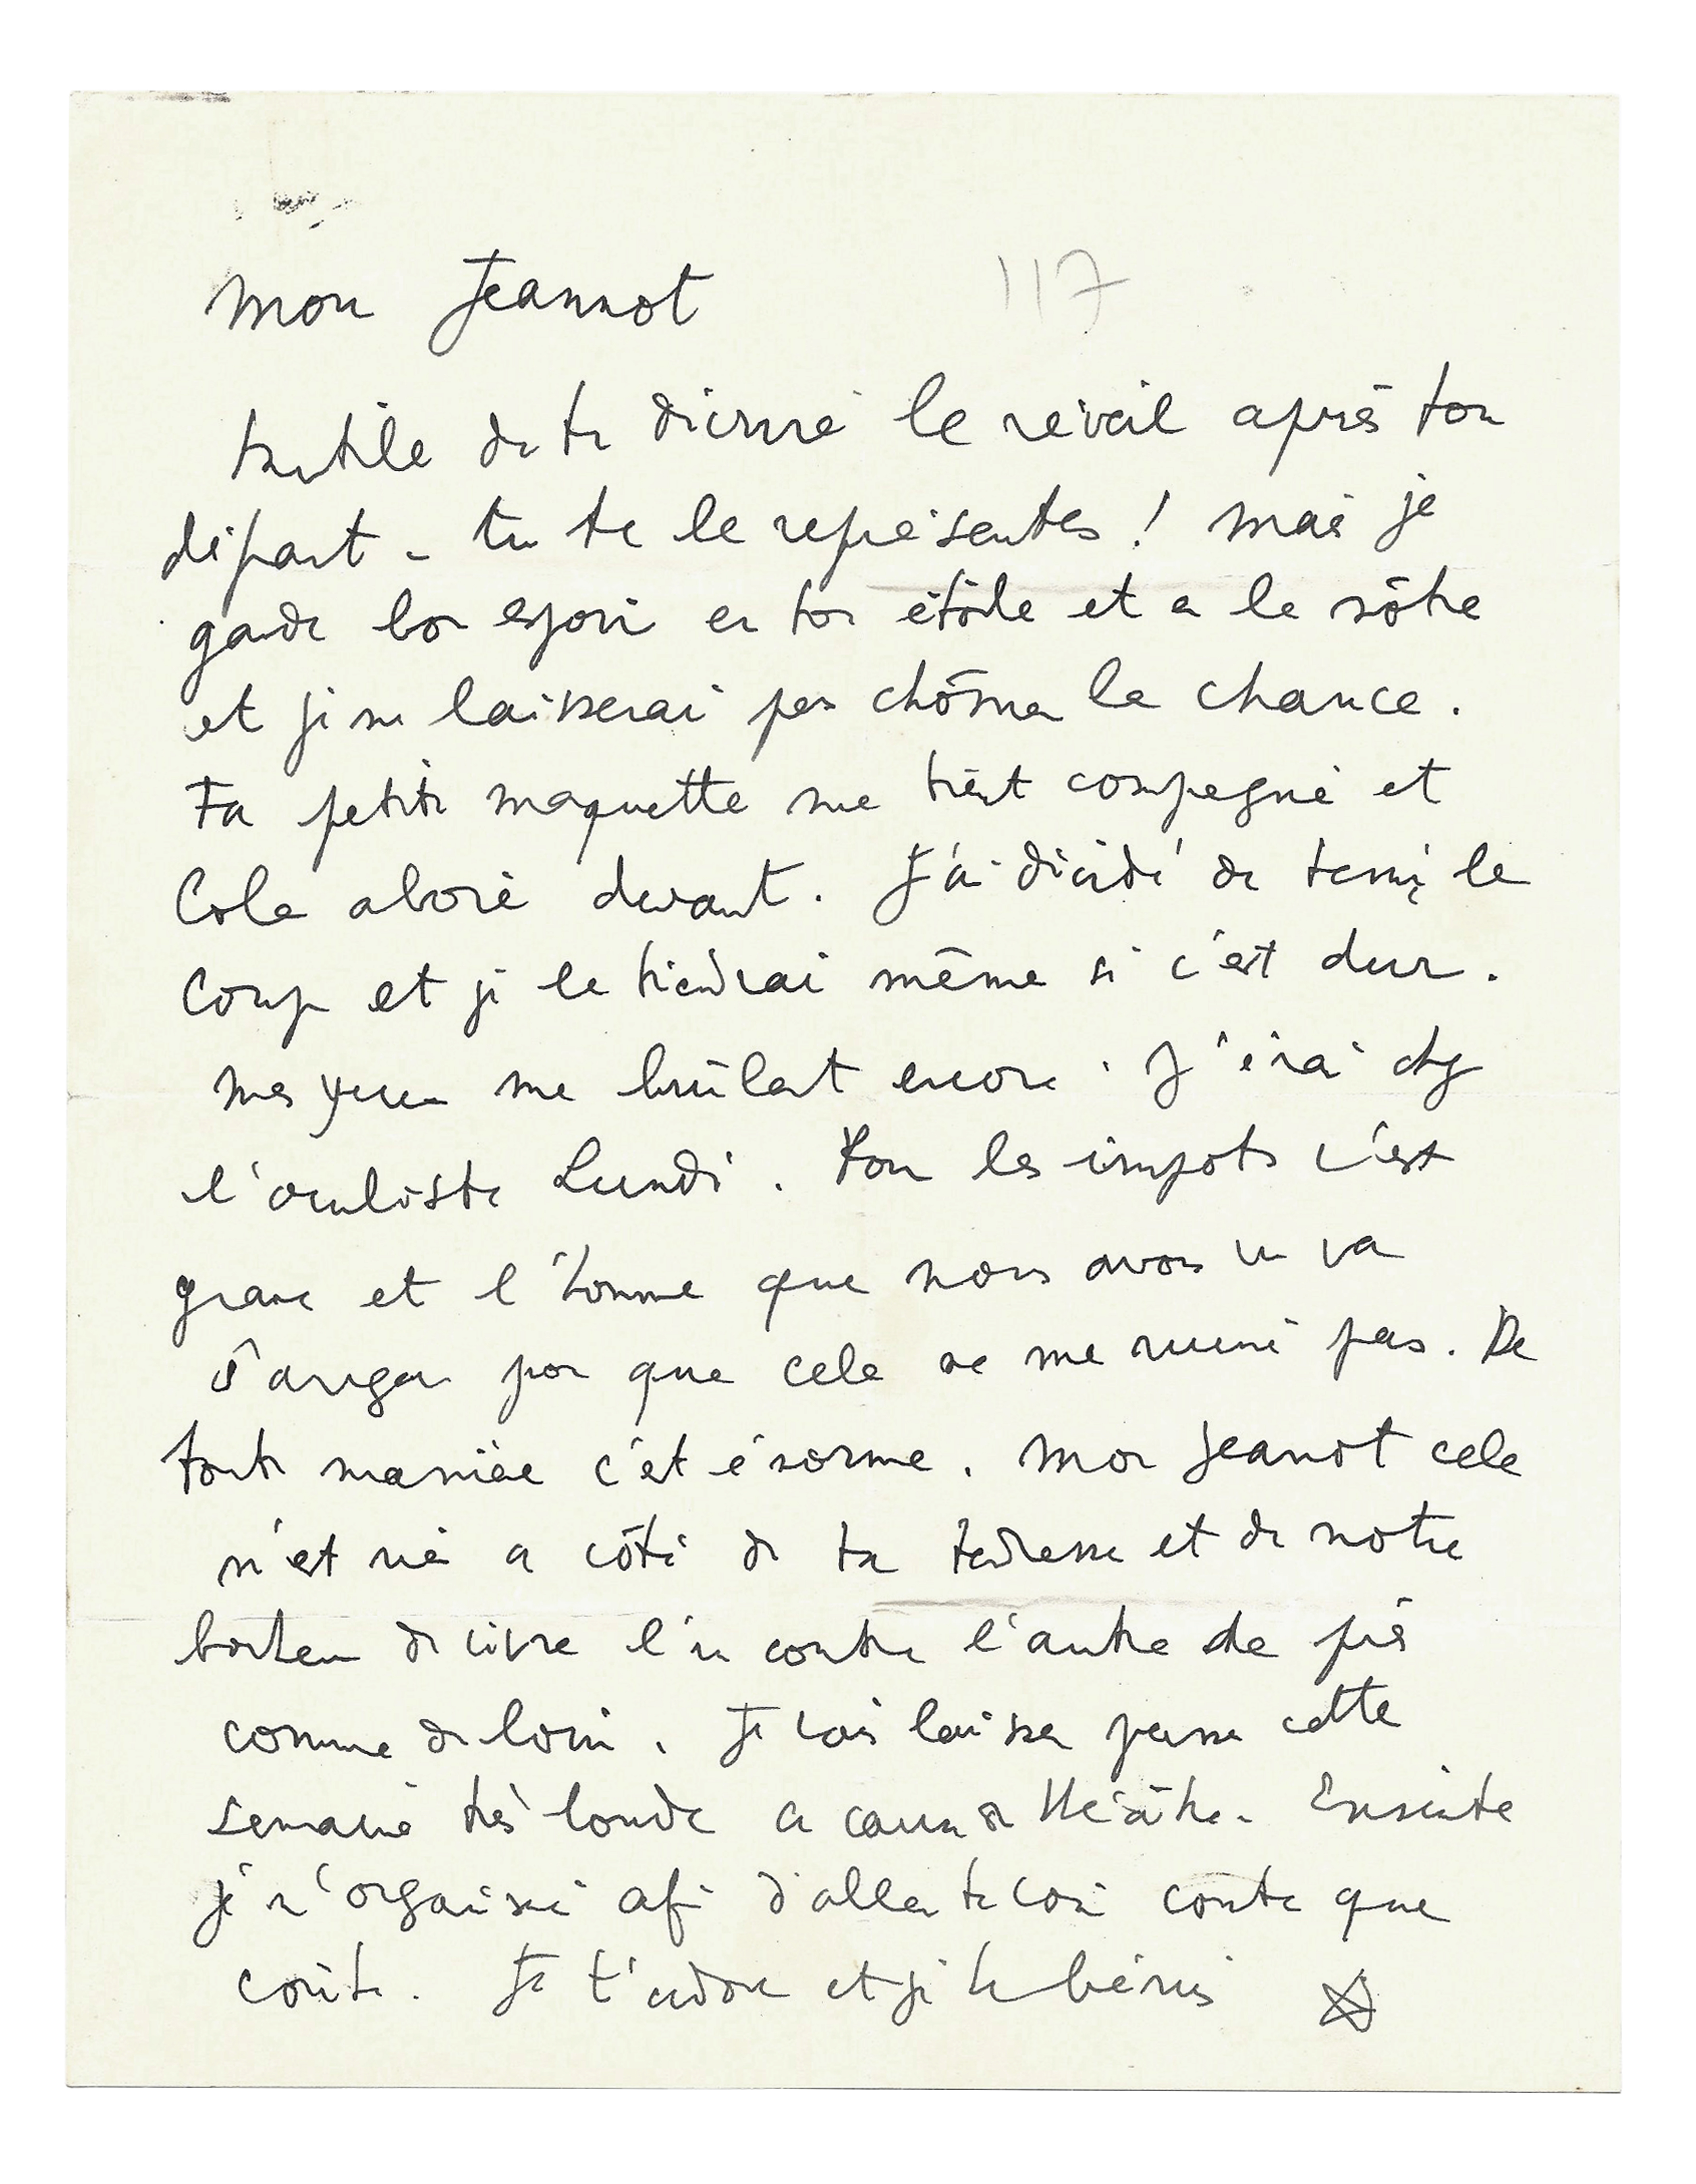 Mon Jeannot
117
Inutile de te décrire le réveil après ton
départ - tu te le représentes ! Mais je
garde bon espoir en ton étoile et a la nôtre
et je ne laisserai pas chômer la chance.
Ta petite maquette me tient compagnie et
Cola aboie devant. J'ai décidé de tenir le
coup et je le tiendrai même si c'est dur.
Mes yeux me brûlent encore. J'irai chez
l'oculiste Lundi. Pour les impots c'est
grave et l'homme que nous avons vu va
s'arranger pour que cela ne me ruine pas. De
toute manière c'est énorme. Mon Jeannot cela
n'est rien a côté de ta tendresse et de notre
bonheur de vivre l'un contre l'autre de près
comme de loin. Je vais laisser passer cette
semaine très lourde a cause de théâtre. Ensuite
je m'organise afin d'aller te voir coute que
coûte. Je t'adore et je te bénis